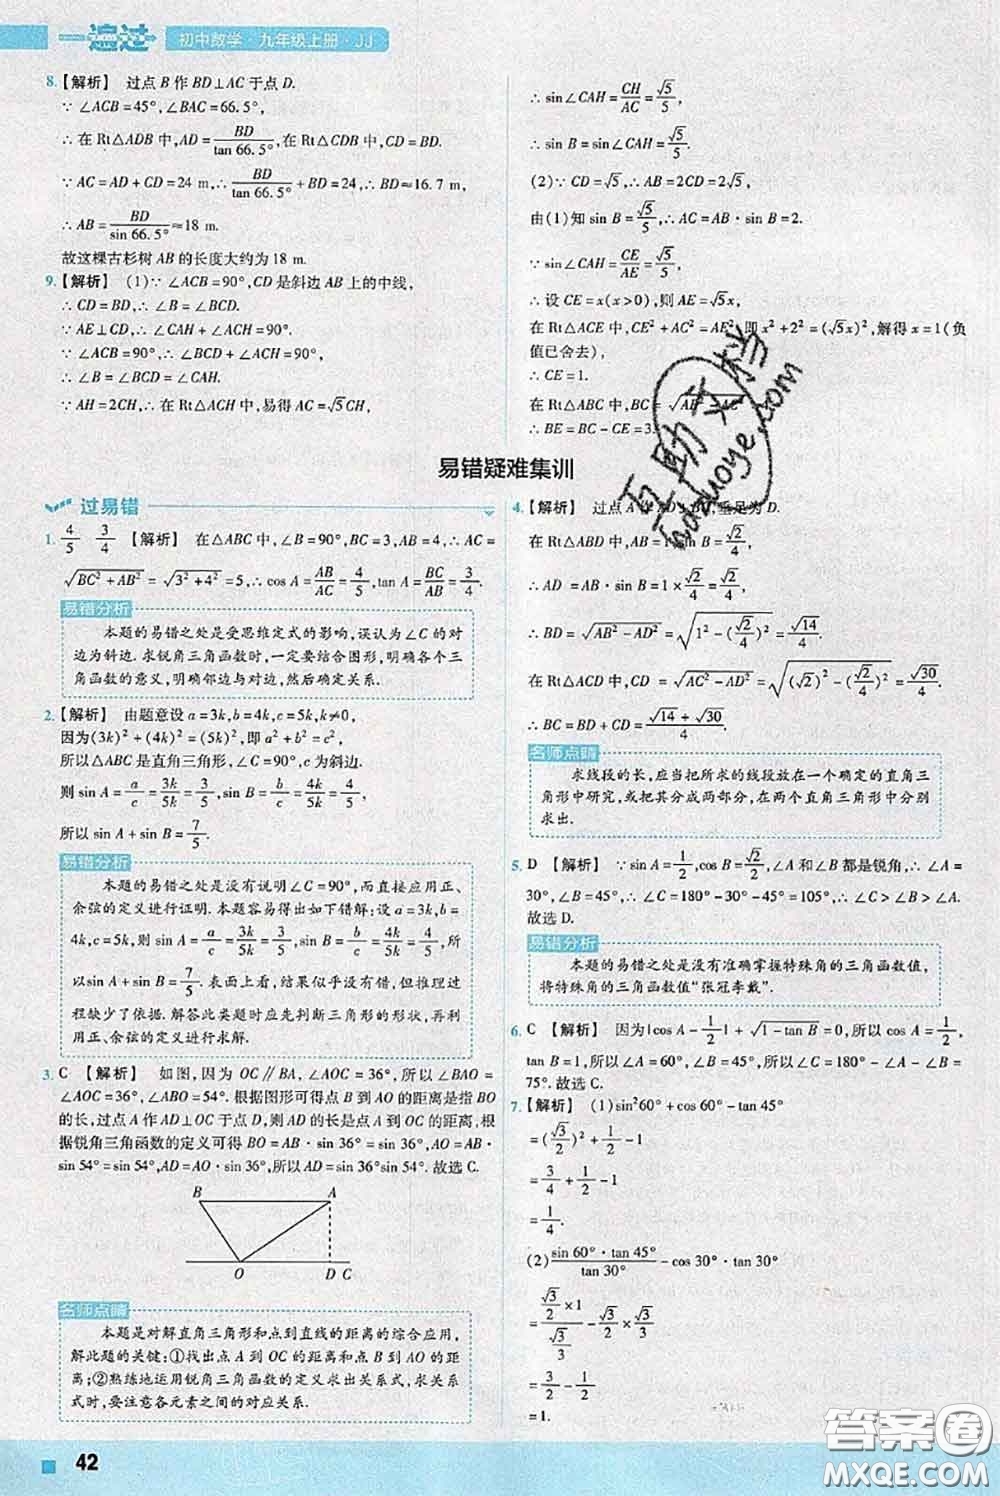 一遍过 初中数学·九年级上册·JJ
8.【解析】 过点 B 作 BD⊥AC 于点 D.
∵∠ACB=45°,∠BAC=66.5°,
∴在 Rt△ADB 中,AD=BD/tan 66.5°,在 Rt△CDB 中,CD=BD.
∵AC=AD+CD=24 m,∴BD/tan 66.5°+BD=24,∴BD≈16.7 m,
∴AB=BD/sin 66.5°≈18 m.
故这棵古杉树 AB 的长度大约为 18 m.
9.【解析】 (1)∵∠ACB=90°,CD是斜边 AB 上的中线,
∴CD=BD,∴∠B=∠BCD.
∵AE⊥CD,∴∠CAH+∠ACH=90°.
∵∠ACB=90°,∴∠BCD+∠ACH=90°,
∴∠B=∠BCD=∠CAH.
∵AH=2CH,∴在 Rt△ACH 中,易得 AC=√5CH,
∴sin∠CAH=CH/AC=√5/5,
∴sin B=sin∠CAH=√5/5.
(2)∵CD=√5,∴AB=2CD=2√5.
由(1)知 sin B=√5/5,∴AC=AB·sin B=2.
∵sin∠CAH=CE/AE=√5/5,
∴设 CE=x(x>0),则 AE=√5x,
在 Rt△ACE 中,CE²+AC²=AE²,即 x²+2²=(√5x)²,解得 x=1(负
值已舍去),
∴CE=1.
在 Rt△ABC 中,BC=√
∴BE=BC-CE=3.
易错疑难集训
过易错
1. 4/5 3/4 【解析】 在△ABC 中,∠B=90°,BC=3,AB=4,∴AC=
√(BC²+AB²)=√(3²+4²)=5,∴cos A=AB/AC=4/5,tan A=BC/AB=3/4.
易错分析
本题的易错之处是受思维定式的影响,误认为∠C 的对
边为斜边.求锐角三角函数时,一定要结合图形,明确各个三
角函数的意义,明确邻边与对边,然后确定关系.
2.【解析】 由题意设 a=3k,b=4k,c=5k,k≠0,
因为(3k)²+(4k)²=(5k)²,即 a²+b²=c²,
所以△ABC 是直角三角形,∠C=90°,c 为斜边.
则 sin A=a/c=3k/5k=3/5,sin B=b/c=4k/5k=4/5,
所以 sin A+sin B=7/5.
易错分析
本题的易错之处是没有说明∠C=90°,而直接应用正、
余弦的定义进行证明.本题容易得出如下错解:设 a=3k,b=
4k,c=5k,则 sin A=a/c=3k/5k=3/5,sin B=b/c=4k/5k=4/5,所
以sin A+sin B=7/5.表面上看,结果似乎没有错,但推理过
程缺少了依据.解答此类题时应先判断三角形的形状,再利
用正、余弦的定义进行求解.
3. C 【解析】 如图,因为 OC∥BA,∠AOC=36°,所以∠BAO=
∠AOC=36°,∠AOB=54°.根据图形可得点 B 到 AO 的距离是指 BO
的长,过点 A 作 AD⊥OC 于点 D,则 AD 的长是点 A 到 OC 的距离,根
据锐角三角函数的定义可得 BO=AB·sin 36°=sin 36°,AO=AB·
sin 54°=sin 54°,AD=AO·sin 36°,所以AD=sin 36°sin 54°.故选 C.
B A
O D C
名师点睛
本题是对解直角三角形和点到直线的距离的综合应用,
解此题的关键:①找出点 A 到 OC 的距离和点 B 到 AO 的距
离;②熟练地运用锐角三角函数的定义求出关系式,求关系
式时,要注意各元素之间的对应关系.
4.【解析】 过点 A 作 AD⊥BC,垂足为 D.
在 Rt△ABD 中,AB=1,sin B=√2/4,
∴AD=AB·sin B=1×√2/4=√2/4,
∴BD=√(AB²-AD²)=√(1²-(√2/4)²)=√14/4.
在 Rt△ACD 中,CD=√(AC²-AD²)=√((√2)²-(√2/4)²)=√30/4,
∴BC=BD+CD=(√14+√30)/4.
名师点睛
求线段的长,应当把所求的线段放在一个确定的直角三
角形中研究,或将其分成两部分,在两个直角三角形中分别
求出.
5. D 【解析】 ∵sin A=1/2,cos B=√2/2,∠A 和∠B 都是锐角,∴∠A=
30°,∠B=45°,∴∠C=180°-30°-45°=105°,∴∠C>∠B>∠A.
故选 D.
易错分析
本题的易错之处是没有准确掌握特殊角的三角函数值,
将特殊角的三角函数值“张冠李戴”.
6. C 【解析】 因为|cos A-1/2|+√(1-tan B)=0,所以 cos A=1/2,
tan B=1,所以∠A=60°,∠B=45°,所以∠C=180°-∠A-∠B=
75°.故选 C.
7.【解析】 (1)sin²60°+cos 60°-tan 45°
=(√3/2)²+1/2-1
=3/4+1/2-1
=1/4.
(2)(sin 60°·tan 45°)/tan 30°-cos 30°·tan 30°
=(√3/2×1)/(√3/3)-√3/2×√3/3
=3/2-1/2
=1.
42
互助文档
hdzuoye.com
答案圈
MXQE.COM